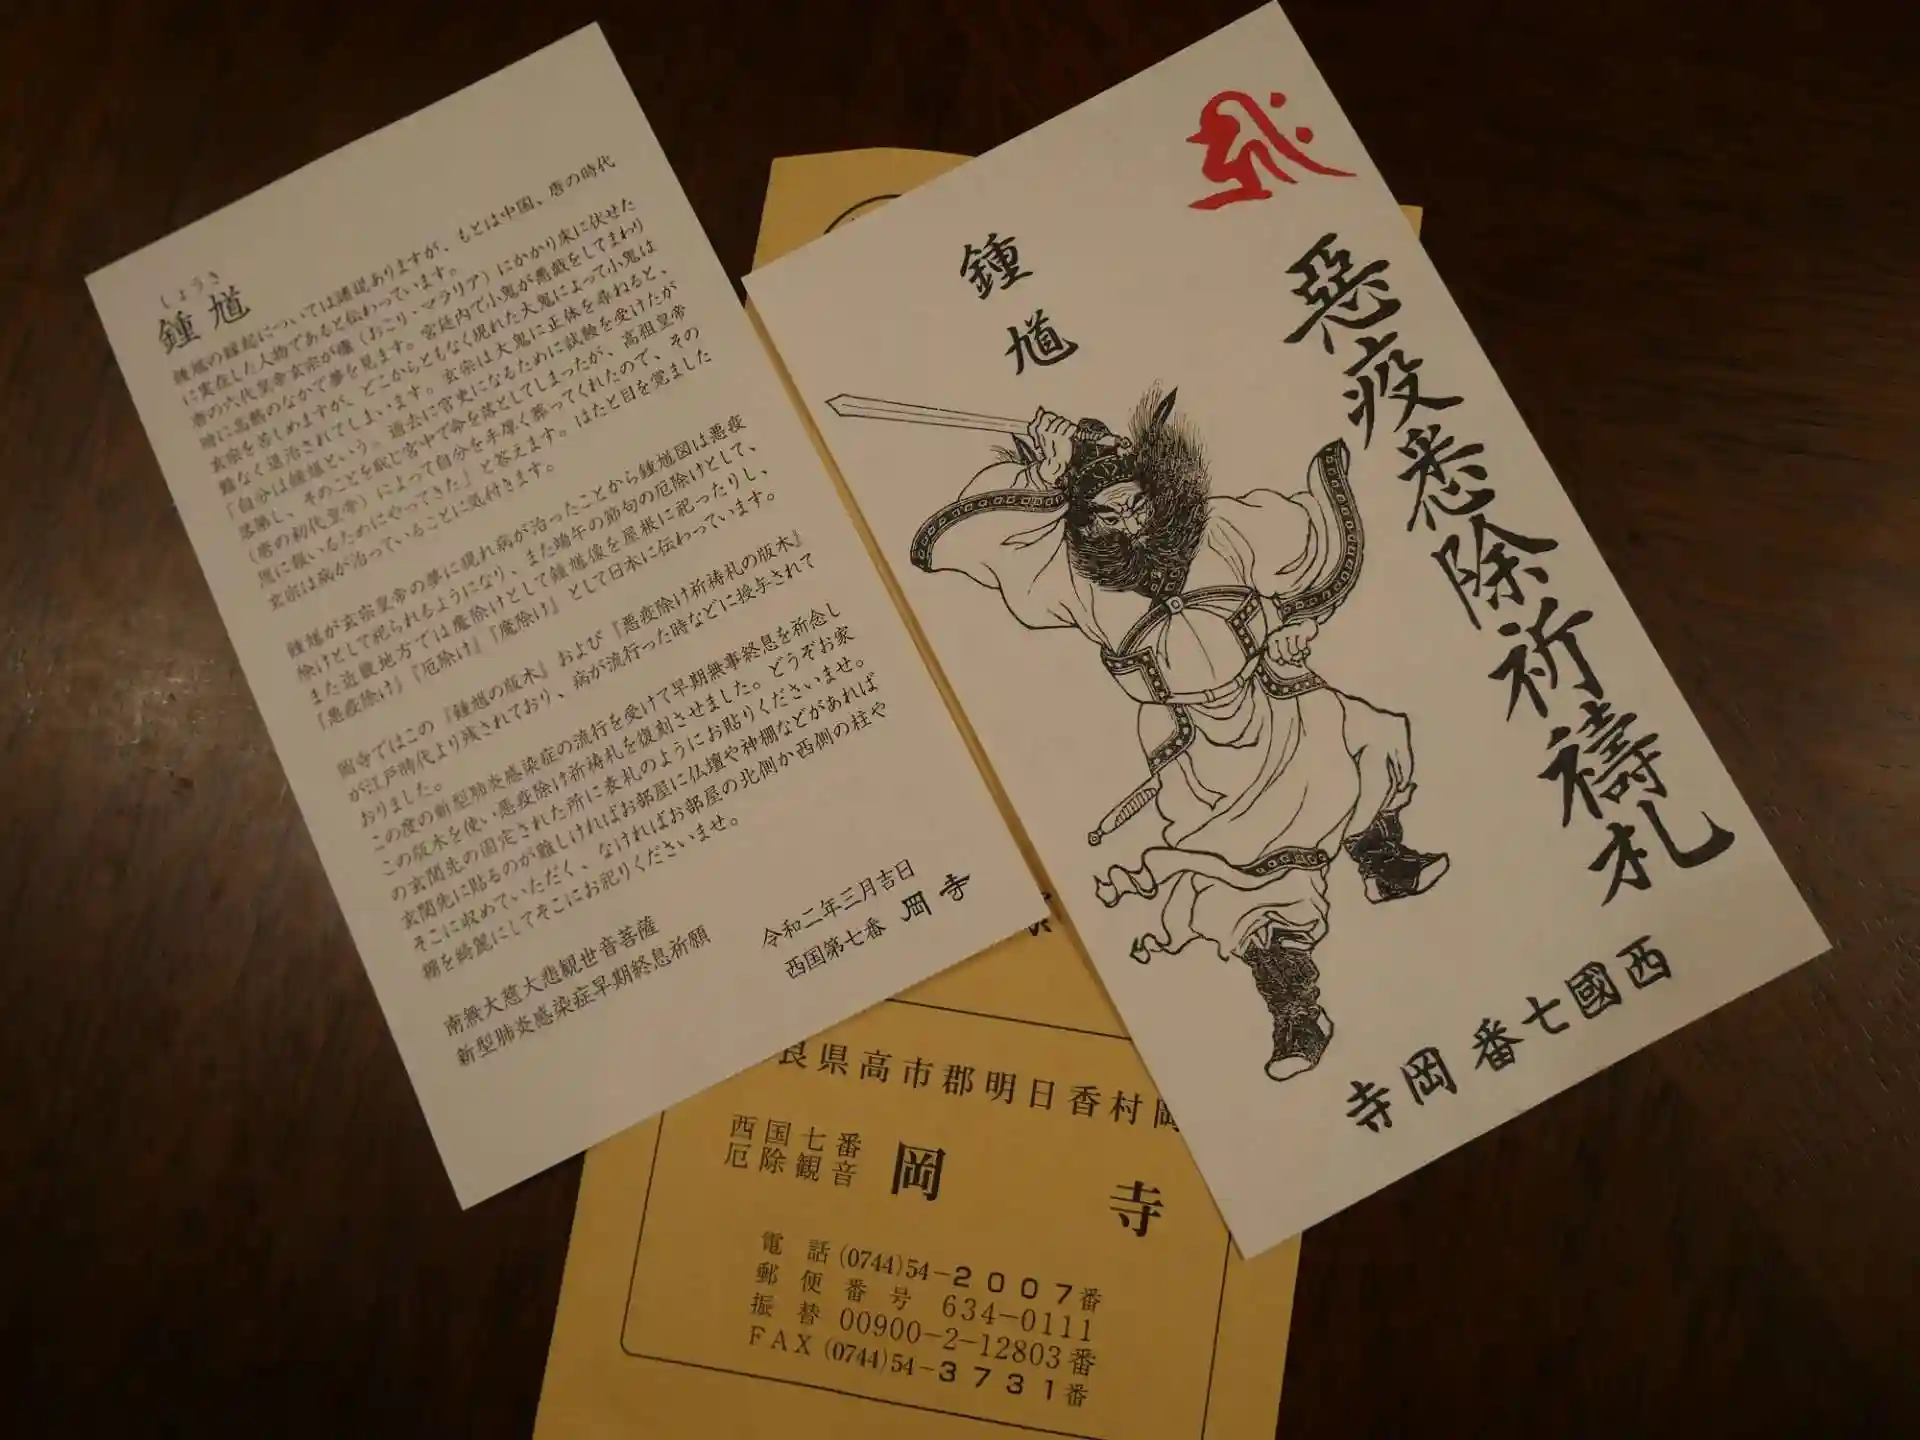 しょうき
鍾馗
鍾馗の縁起については諸説ありますが、もとは中国、唐の時代
に実在した人物であると伝わっています。
唐の六代皇帝玄宗が瘧（おこり、マラリア）にかかり床に伏せた
時に高熱のなかで夢を見ます。宮廷内で小鬼が悪戯をしてまわり
玄宗を苦しめますが、どこからともなく現れた大鬼によって小鬼は
難なく退治されてしまいます。玄宗は大鬼に正体を尋ねると、
「自分は鍾馗という。過去に官吏になるために試験を受けたが
落第し、そのことを恥じ宮中で命を落としてしまったが、高祖皇帝
（唐の初代皇帝）によって自分を手厚く葬ってくれたので、その
恩に報いるためにやってきた」と答えます。はたと目を覚ました
玄宗は病が治っていることに気付きます。
鍾馗が玄宗皇帝の夢に現れ病が治ったことから鍾馗図は悪疫
除けとして祀られるようになり、また端午の節句の厄除けとして、
また近畿地方では魔除けとして鍾馗像を屋根に祀ったりし、
『悪疫除け』『厄除け』『魔除け』として日本に伝わっています。
岡寺ではこの『鍾馗の版木』および『悪疫除け祈祷札の版木』
が江戸時代より残されており、病が流行った時などに授与されて
おりました。
この度の新型肺炎感染症の流行を受けて早期無事終息を祈念し
この版木を使い悪疫除け祈祷札を復刻させました。どうぞお家
の玄関先の固定された所に表札のようにお貼りくださいませ。
玄関先に貼るのが難しければお部屋に仏壇や神棚などがあれば
そこに収めていただく、なければお部屋の北側か西側の柱や
棚を綺麗にしてそこにお祀りくださいませ。
南無大慈大悲観世音菩薩
新型肺炎感染症早期終息祈願
令和二年三月吉日
西国第七番 岡寺
鍾馗
惡疫悉除祈禱札
西國七番 岡寺
良県高市郡明日香村岡
西国七番
厄除観音
岡寺
電話(0744)54-2007番
郵便番号 634-0111
振替 00900-2-12803番
FAX(0744)54-3731番